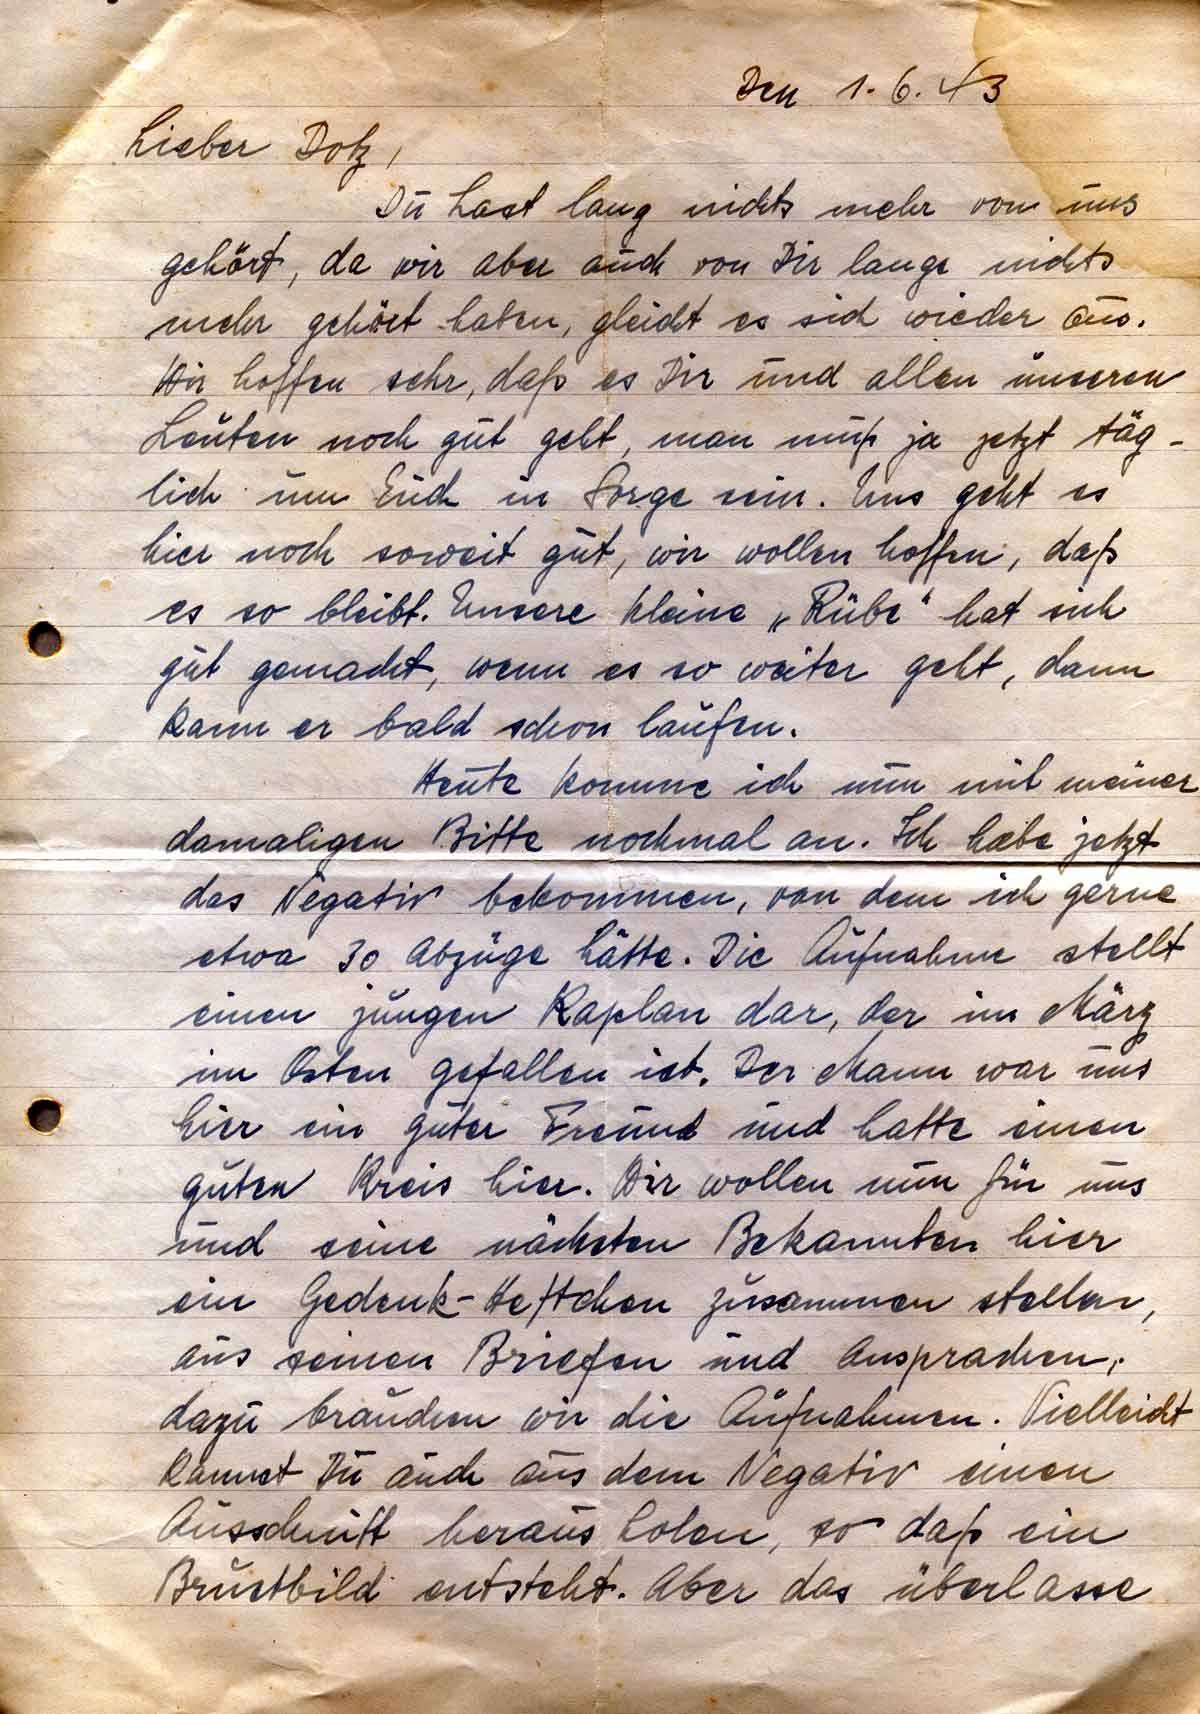 Den 1.6.43
Lieber Dotz,
Du hast lang nichts mehr von uns
gehört, da wir aber auch von Dir lange nichts
mehr gehört haben, gleicht es sich wieder aus.
Wir hoffen sehr, daß es Dir und allen unseren
Leuten noch gut geht, man muß ja jetzt täg-
lich um Euch in Sorge sein. Uns geht es
hier noch soweit gut, wir wollen hoffen, daß
es so bleibt. Unsere kleine „Rübe“ hat sich
gut gemacht, wenn es so weiter geht, dann
kann er bald schon laufen.
Heute komme ich nun mit meiner
damaligen Bitte nochmal an. Ich habe jetzt
das Negativ bekommen, von dem ich gerne
etwa 30 Abzüge hätte. Die Aufnahme stellt
einen jungen Kaplan dar, der im März
im Osten gefallen ist. Der Mann war uns
hier ein guter Freund und hatte einen
guten Kreis hier. Wir wollen nun für uns
und seine nächsten Bekannten hier
ein Gedenk-Heftchen zusammen stellen,
aus seinen Briefen und Ansprachen,
dazu brauchen wir die Aufnahmen. Vielleicht
kannst Du auch aus dem Negativ einen
Ausschnitt heraus holen, so daß ein
Brustbild entsteht. Aber das überlasse